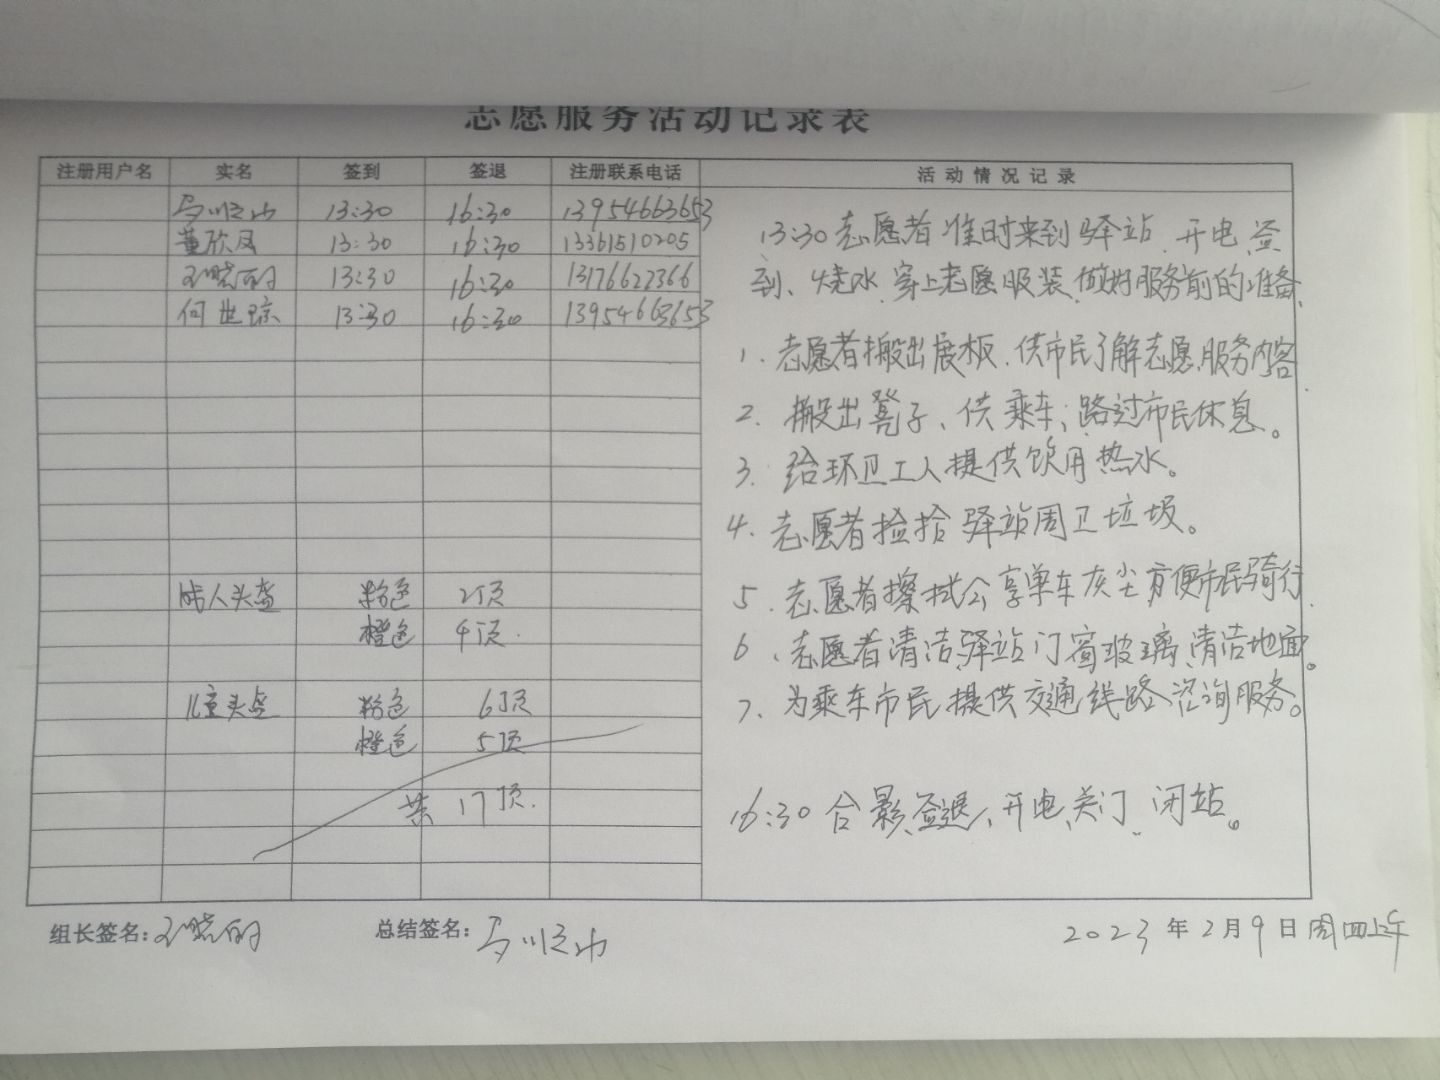 志愿服务活动记录表
注册用户名 实名 签到 签退 注册联系电话 活动情况记录
13:30 16:30 13954663653
董欣凤 13:30 16:30 13361510205
王晓丽 13:30 16:30 13176622366
何世琼 13:30 16:30 13954663653
成人头盔 粉色 2顶
橙色 4顶.
儿童头盔 粉色 6顶
橙色 5顶
共 17顶.
13:30志愿者准时来到驿站、开电、签
到、烧水、穿上志愿服装、做好服务前的准备、
1、志愿者搬出展板、供市民了解志愿服务内容.
2、搬出凳子、供乘车、路过市民休息。
3、给环卫工人提供饮用热水。
4、志愿者捡拾驿站周卫垃圾。
5、志愿者擦拭公享单车灰尘方便市民骑行.
6、志愿者清洁驿站门窗玻璃、清洁地面。
7、为乘车市民提供交通线路咨询服务。
16:30合影、签退、开电、关门、闭站。
组长签名:王晓丽 总结签名: 2023年2月9日周四上午